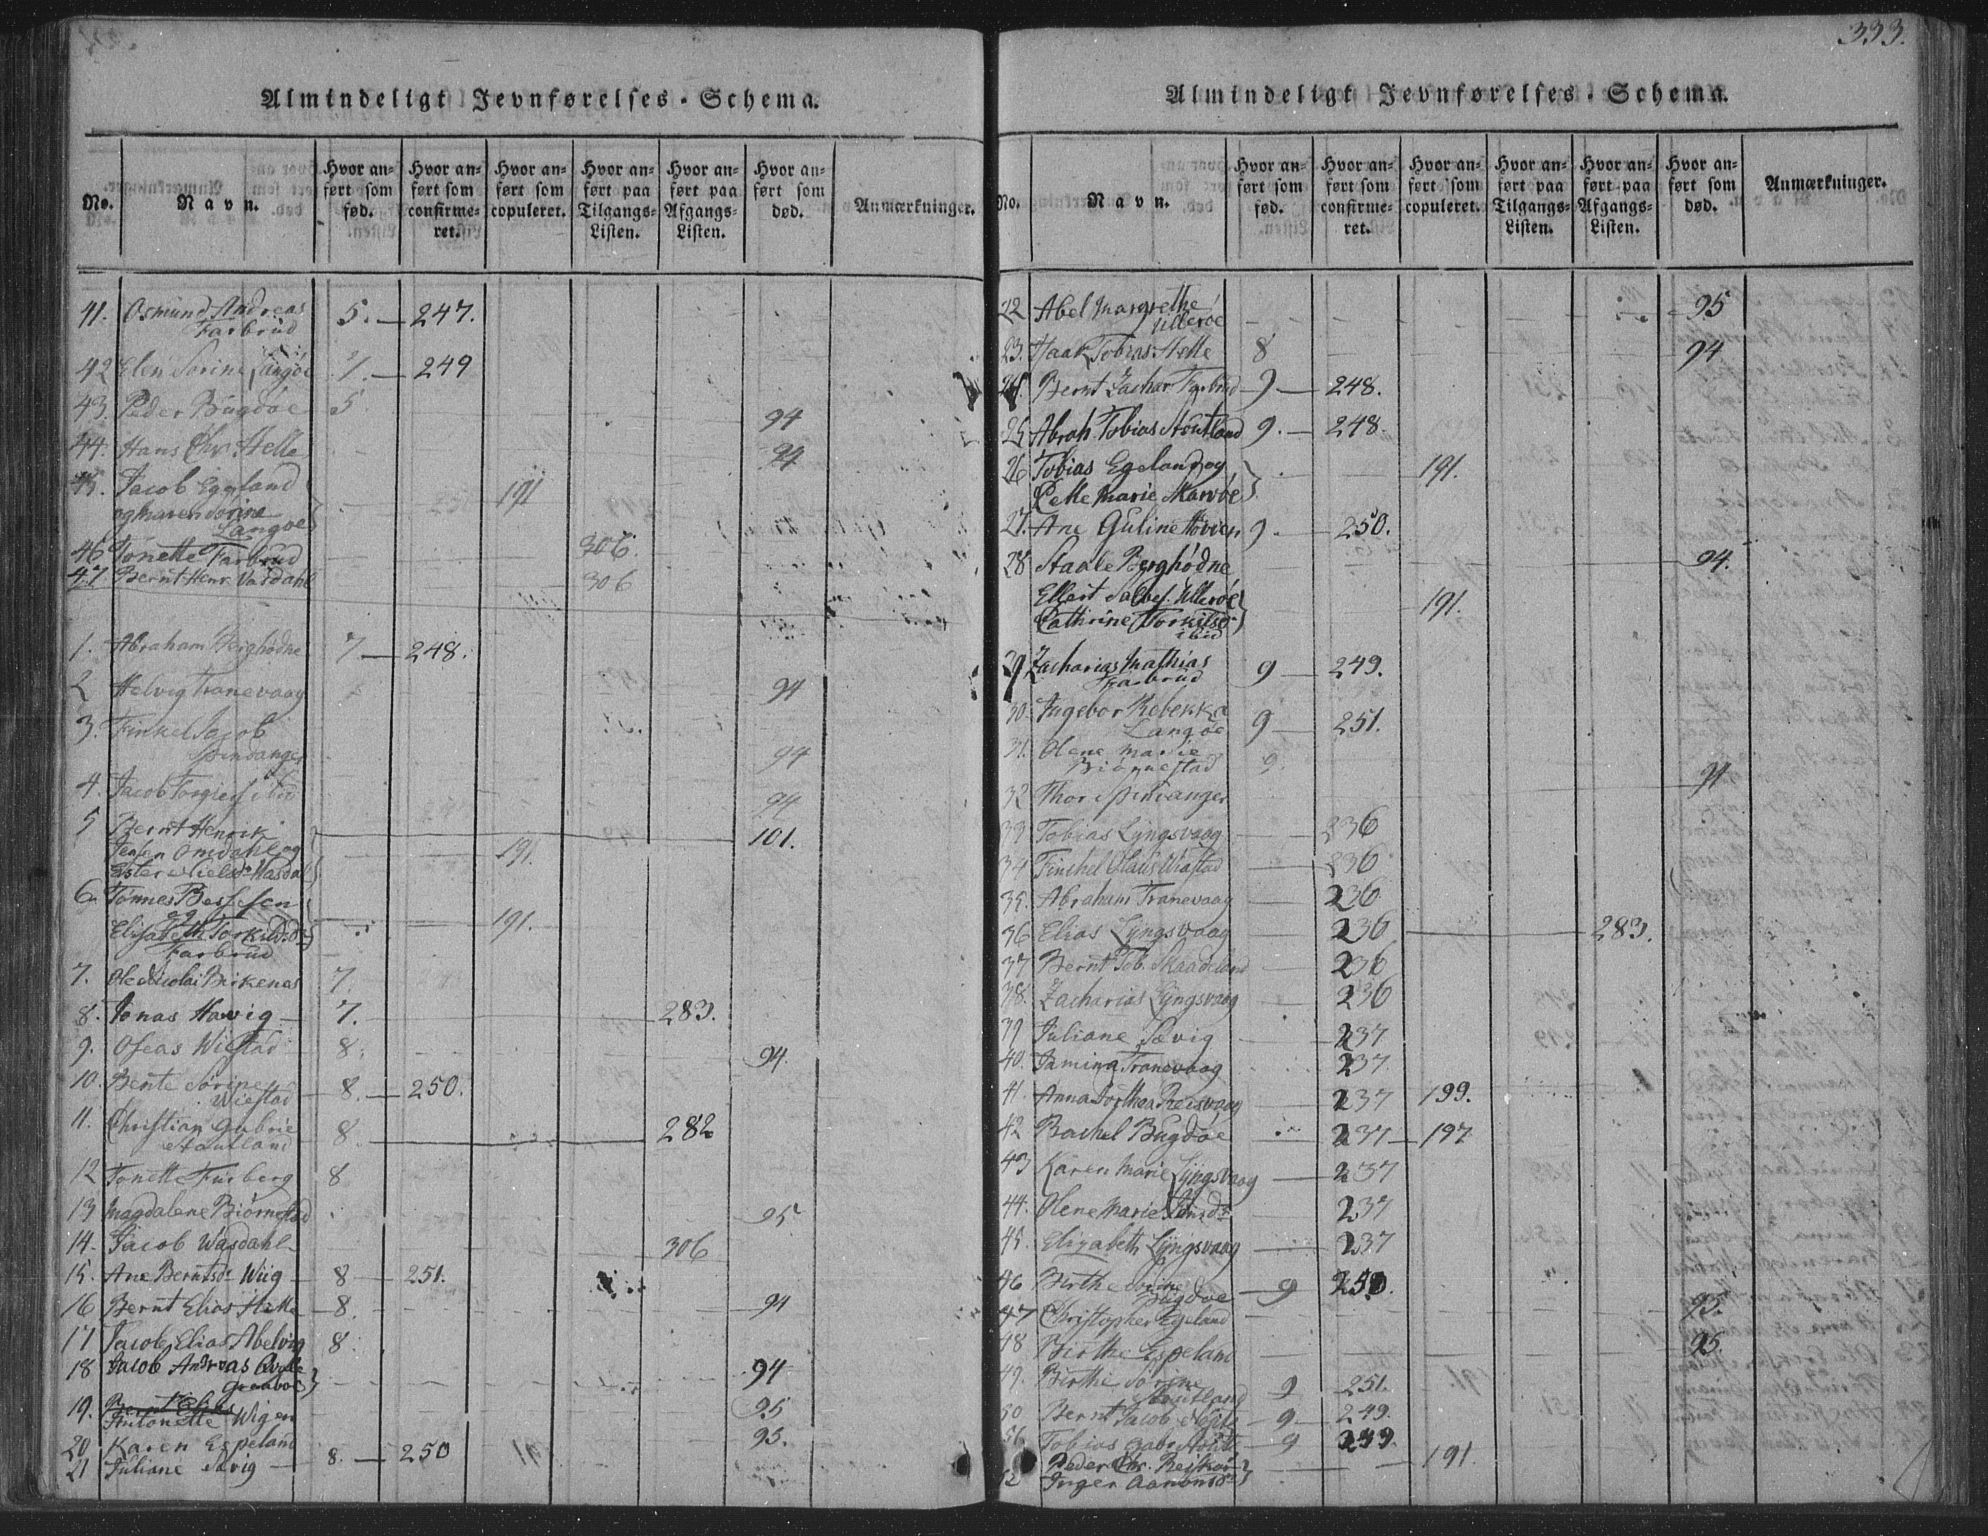 333.
Almindeligt Jevnførelses-Schema.
No.
Navn.
Hvor anført som fød.
Hvor anført som confirmeret.
Hvor anført som copuleret.
Hvor anført paa Tilgangs-Listen.
Hvor anført paa Afgangs-Listen.
Hvor anført som død.
Anmærkninger.
41. Osmund Andreas
Farbrud 5. — 247.
42 Elen Sorine Langøe 7. — 249
43. Peder Bugdøe 5 94
44. Hans Chr. Helle 94
45. Jacob Eggland
og Maren Sorine
Langøe 191
46 Tonette Farbrud 306.
47 Bernt Henr. Vasdahl 306
1. Abraham Berghødne 7 — 248.
2 Helvig Tranevaag 94
3. Finkel Jacob
Spindanger 94
4. Jacob Torgiers ibid 94
5 Bernt Henrik 101.
Jensen Omdahl og
Ester Nielsdr Wasdal 191.
6. Tønnes Berssen
og
Elisabeth Torkildsdr 191.
Farbrud
7. Ole Nicolai Birkenes 7.
8. Jonas Hawig — 7. 283.
9. Oseas Wiestad 8. 94.
10. Bente Sorine
Wiestad — 8. — 250.
11. Christian Gabrie
Stoutland 8. 282
12 Tonette Furberg 8
13 Magdalene Biørnestad 95
14. Jacob Wasdahl 306
15. Ane Berntsdr Wiig — 8 — 251.
16 Bernt Elias Helle — 8. 94
17 Jacob Elias Abelvig 8.
18 Jacob Andreas
94
19. Bernt Elias
Antonette Wigen 95
20 Karen Espeland 95.
21 Juliane Sævig — 8. — 250
Almindeligt Jevnførelses-Schema.
No.
Navn.
Hvor anført som fød.
Hvor anført som confirmeret.
Hvor anført som copuleret.
Hvor anført paa Tilgangs-Listen.
Hvor anført paa Afgangs-Listen.
Hvor anført som død.
Anmærkninger.
22 Abel Margrethe
Ullerøe 95
23. Haak Tobias Helle 8 94
Bernt Zachar Farbrud — 9 — 248.
25 Abrah. Tobias Stoutland 9. — 248.
26 Tobias Egeland og
Pelle Marie Skarvøe 191.
27. Ane Guline Hoven 9. — 250.
28 Staale Berghødne 94.
Ellert Salves. Ullerøe
Cathrine Torkilsdr 191.
ibid
29 Zacharias Mathias
Farbrud 9 — 249.
30. Ingebor Rebekka
Langøe 9 — 251.
31. Olene Marie
Biørnestad 9.
32 Thor Spindanger 94
33 Tobias Lyngsvaag 236
34 Finckel Olaus Wiastad 236
35. Abraham Tranevaag 236
36 Elias Lyngsvaag 236 283.
37 Bernt Tob. Skaadeland 236
38. Zacharias Lyngsvaag 236
39 Juliane Sævig 237
40. Jamina Tranevaag 237.
41. Anna Dorthea Reisvaag 237 199.
42 Rachel Bugdøe 237 — 197
43 Karen Marie Lyngsvaag 237
44. Olene Marie 237
45 Elizabeth Lyngsvaag 237
46 Birthe Sorine
Bugdøe 9 250.
47 Christopher Egeland 95.
48 Birthe Espeland 95.
49. Birthe Sorine
Stoutland 9 251.
50 Bernt Jacob 9 — 249.
Tobias 9 249.
Peder Chr. 191.
52 Inger Aanonsdr